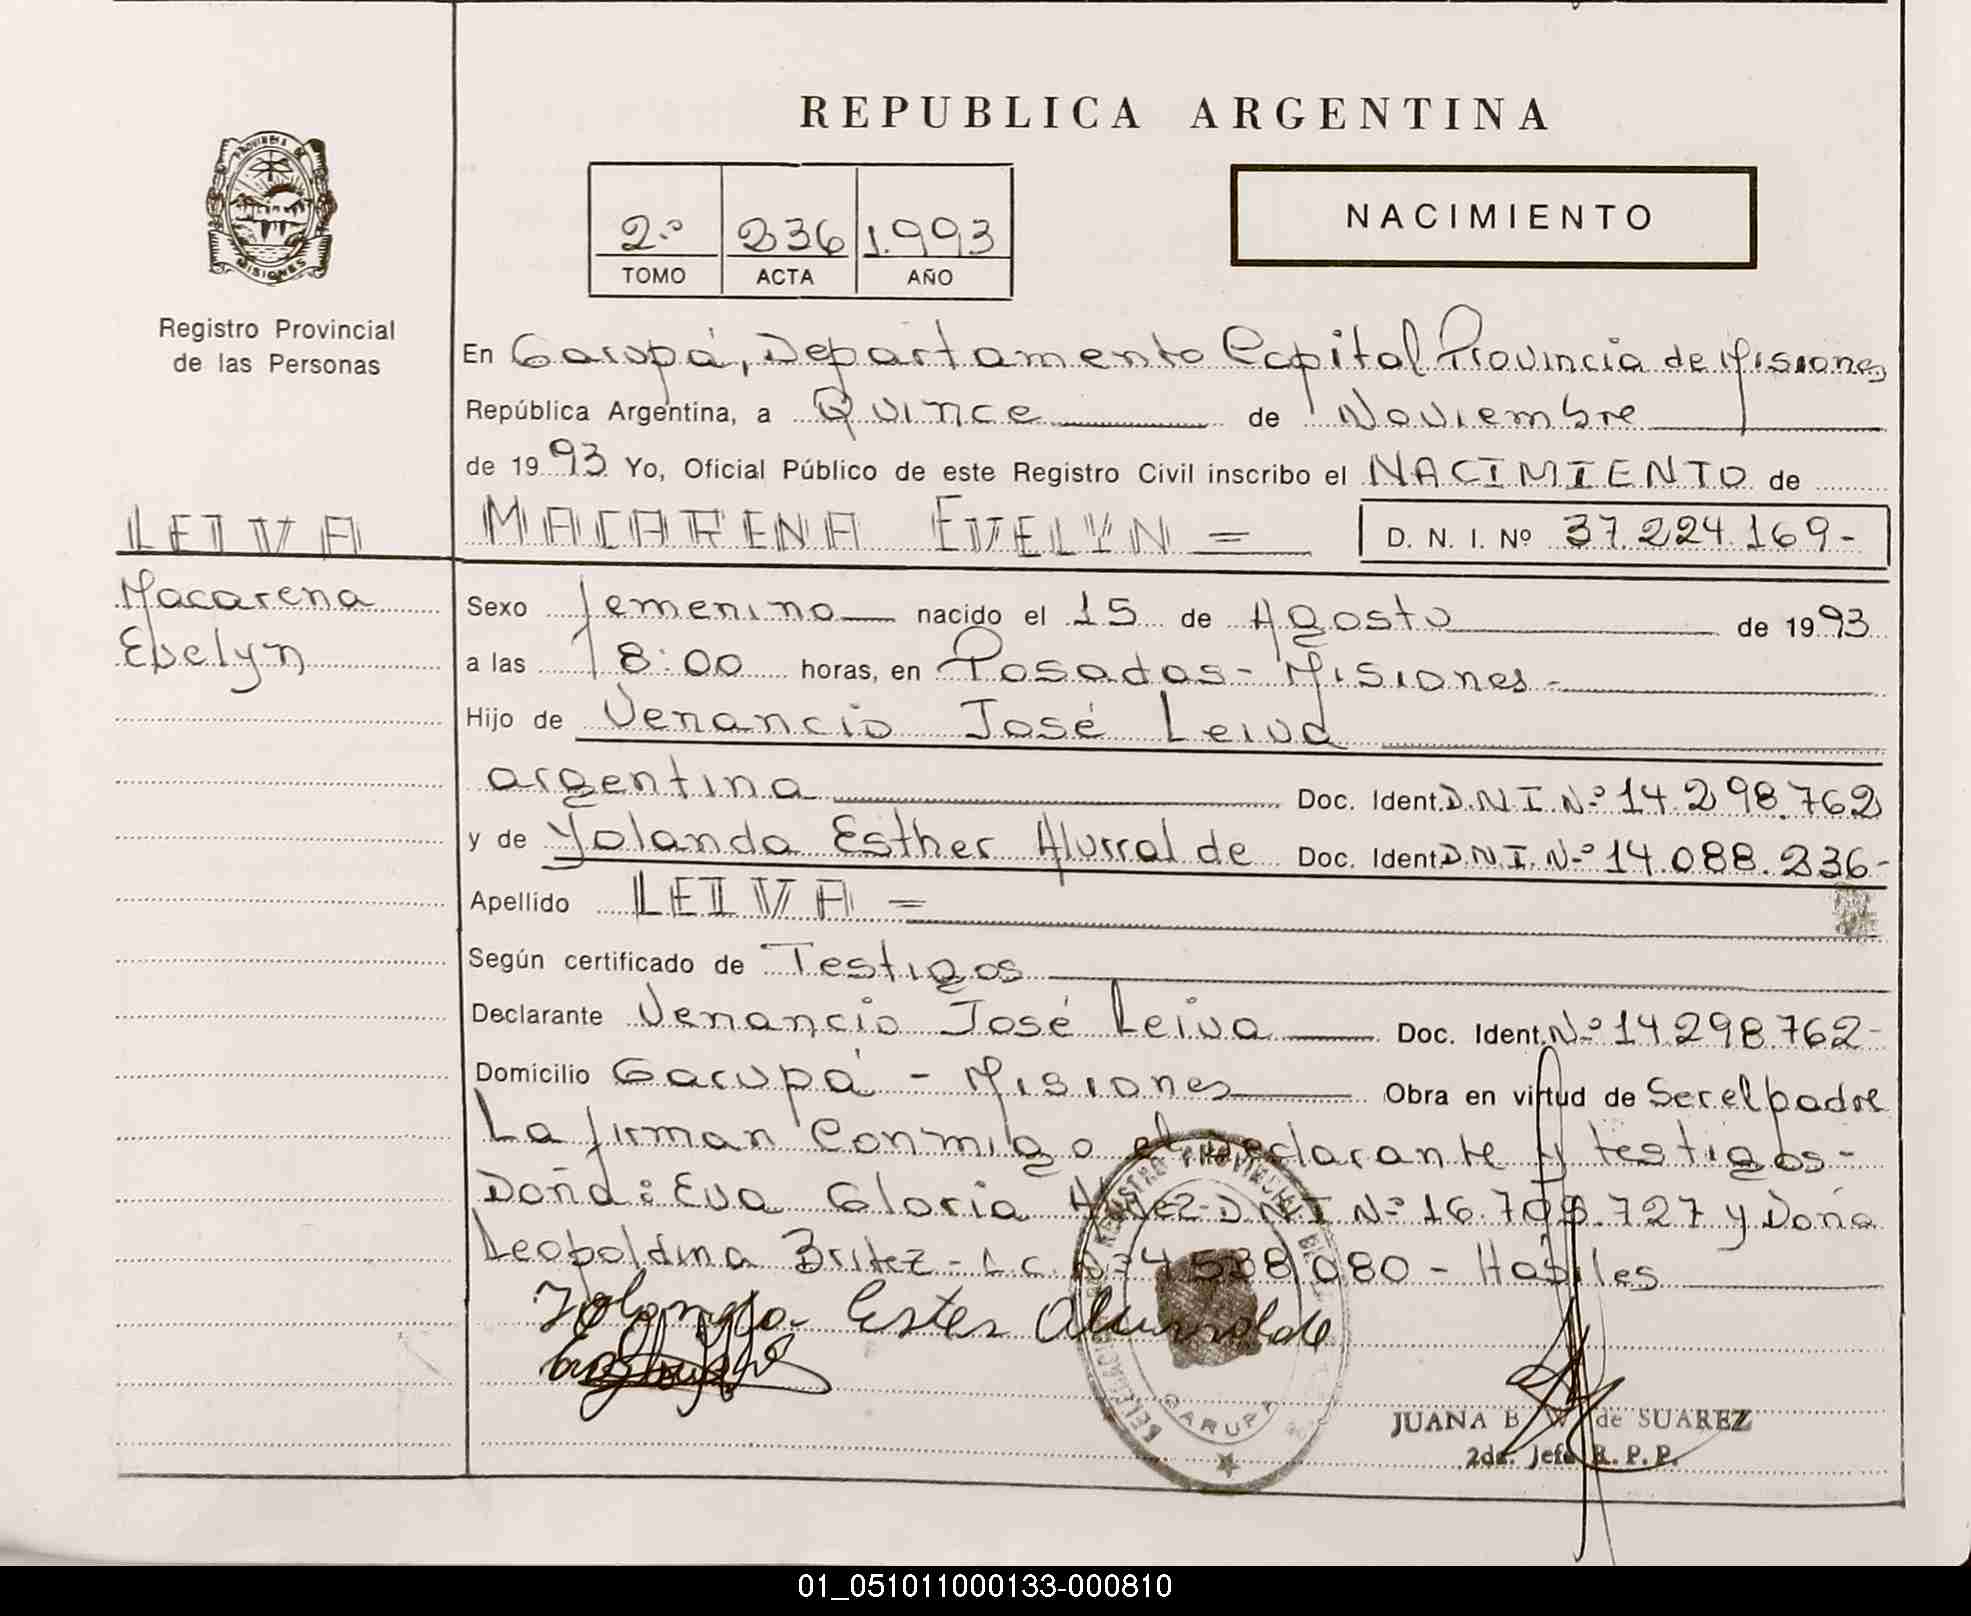 REPUBLICA ARGENTINA
PROVINCIA DE MISIONES
Registro Provincial
de las Personas
2.º 236 1.993
TOMO ACTA AÑO
NACIMIENTO
En Garupá, Departamento Capital Provincia de Misiones
República Argentina, a Quince de Noviembre
de 1993 Yo, Oficial Público de este Registro Civil inscribo el NACIMIENTO de
LEIVA
MACARENA EVELYN =
D. N. I. Nº 37.224.169-
Macarena
Evelyn
Sexo femenino nacido el 15 de Agosto de 1993
a las 8:00 horas, en Posadas - Misiones -
Hijo de Venancio José Leiva
argentina Doc. Ident. D.N.I.Nº 14.298.762
y de Yolanda Esther Alurralde Doc. Ident. D.N.I.Nº 14.088.236-
Apellido LEIVA =
Según certificado de Testigos
Declarante Venancio José Leiva Doc. Ident. Nº 14.298.762-
Domicilio Garupá - Misiones Obra en virtud de Ser el padre
La firman Conmigo el declarante y testigos-
Doña: Eva Gloria DNI Nº 16.709.727 y Doña
Leopoldina Britez - L.C. Nº 4.538.080 - Hábiles
Yolanda Ester Alurralde
REGISTRO PROVINCIAL
GARUPA
JUANA B. de SUAREZ
2da. Jefe R. P. P.
01_051011000133-000810